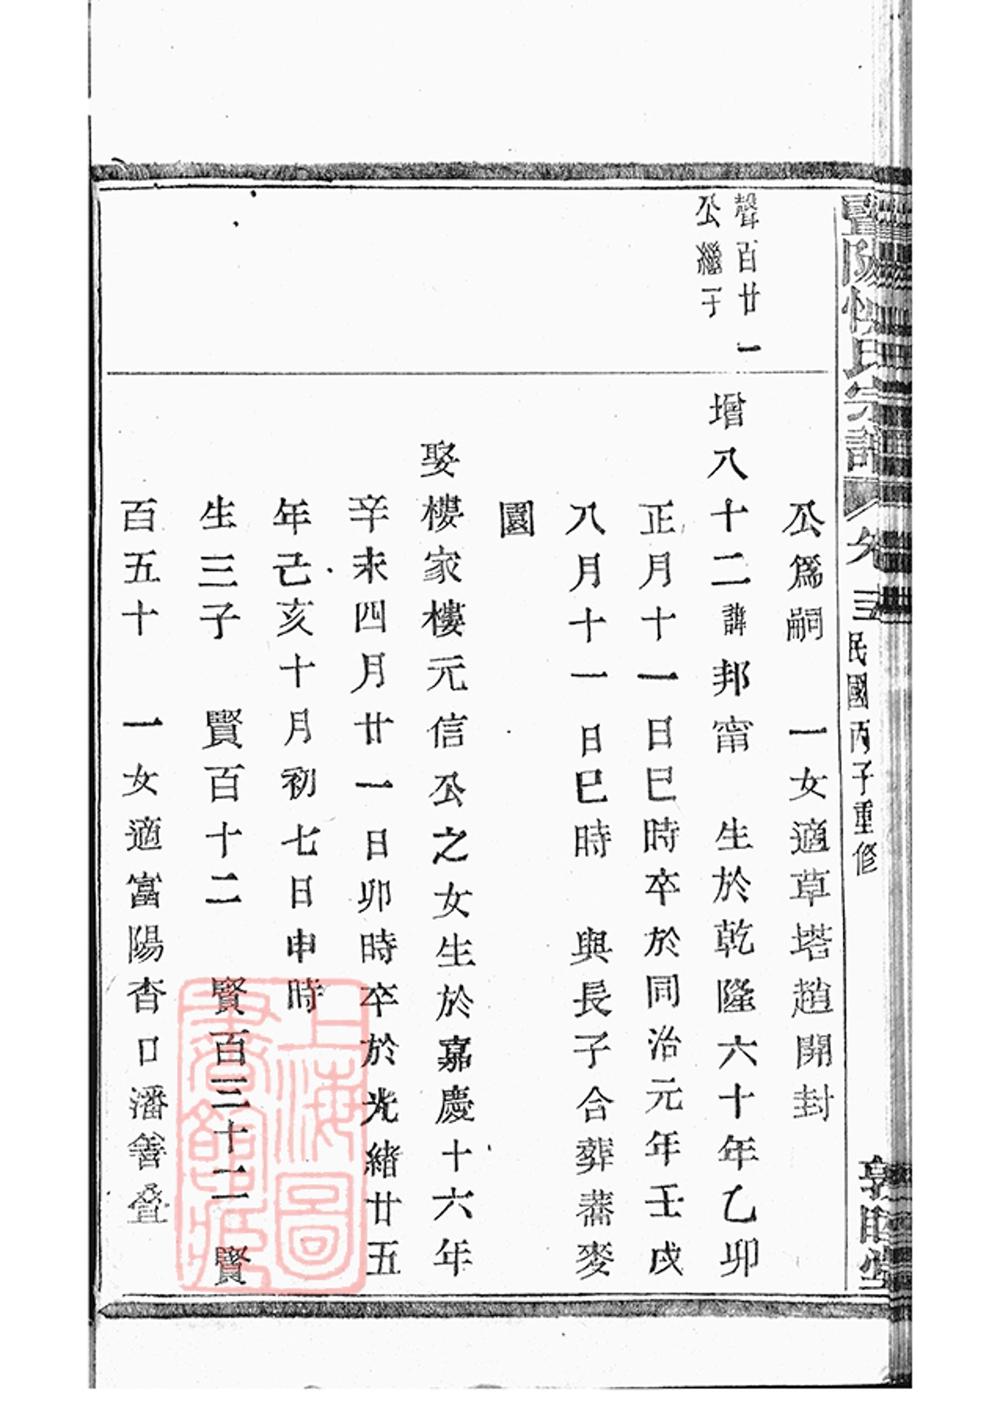 暨陽
氏宗譜
卷
三
民國丙子重修
敦睦堂
聲百廿一
公繼子
公爲嗣　一女適草塔趙開封
增八十二諱邦甯　生於乾隆六十年乙卯
正月十一日巳時卒於同治元年壬戌
八月十一日巳時　與長子合葬蕎麥
園
娶樓家樓元信公之女生於嘉慶十六年
辛未四月廿一日卯時卒於光緒廿五
年己亥十月初七日申時
生三子　賢百十二　賢百三十二　賢
百五十　一女適富陽杳口潘善叠
上海圖
書館藏